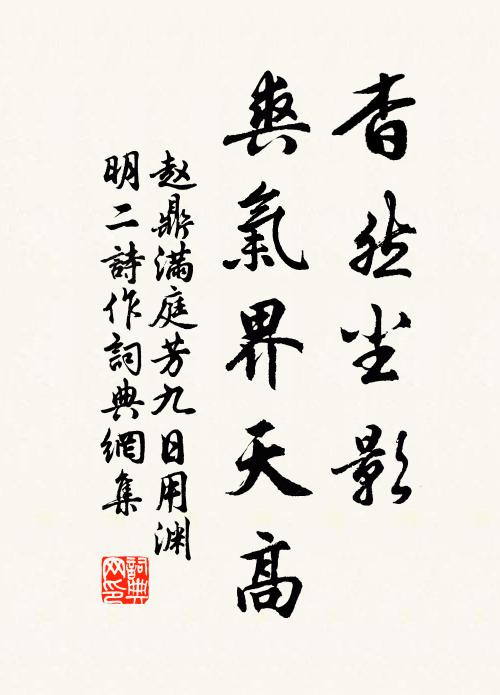 杳然尘影
爽氣界天高
赵鼎滿庭芳九日用渊
明二詩作詞典網集
詞典
网印